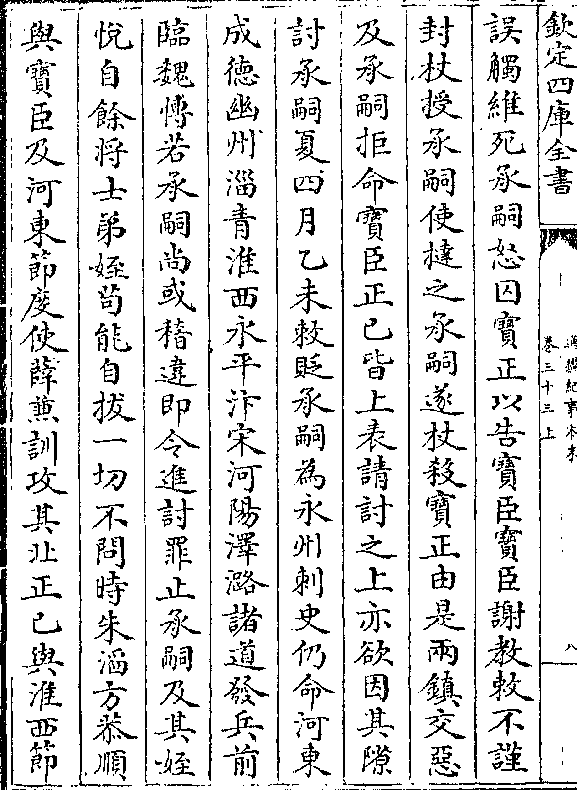 欽定四庫全書
通鑑紀事本末
卷三十三上
八
誤觸維死承嗣怒囚寶正以告寶臣寶臣謝教敕不謹
封杖授承嗣使撻之承嗣遂杖殺寶正由是兩鎮交惡
及承嗣拒命寶臣正已皆上表請討之上亦欲因其隙
討承嗣夏四月乙未敕貶承嗣為永州刺史仍命河東
成德幽州淄青淮西永平汴宋河陽澤潞諸道發兵前
臨魏愽若承嗣尚或稽違即令進討罪止承嗣及其姪
悅自餘將士弟姪茍能自拔一切不問時朱滔方恭順
與寶臣及河東節度使薛兼訓攻其北正已與淮西節